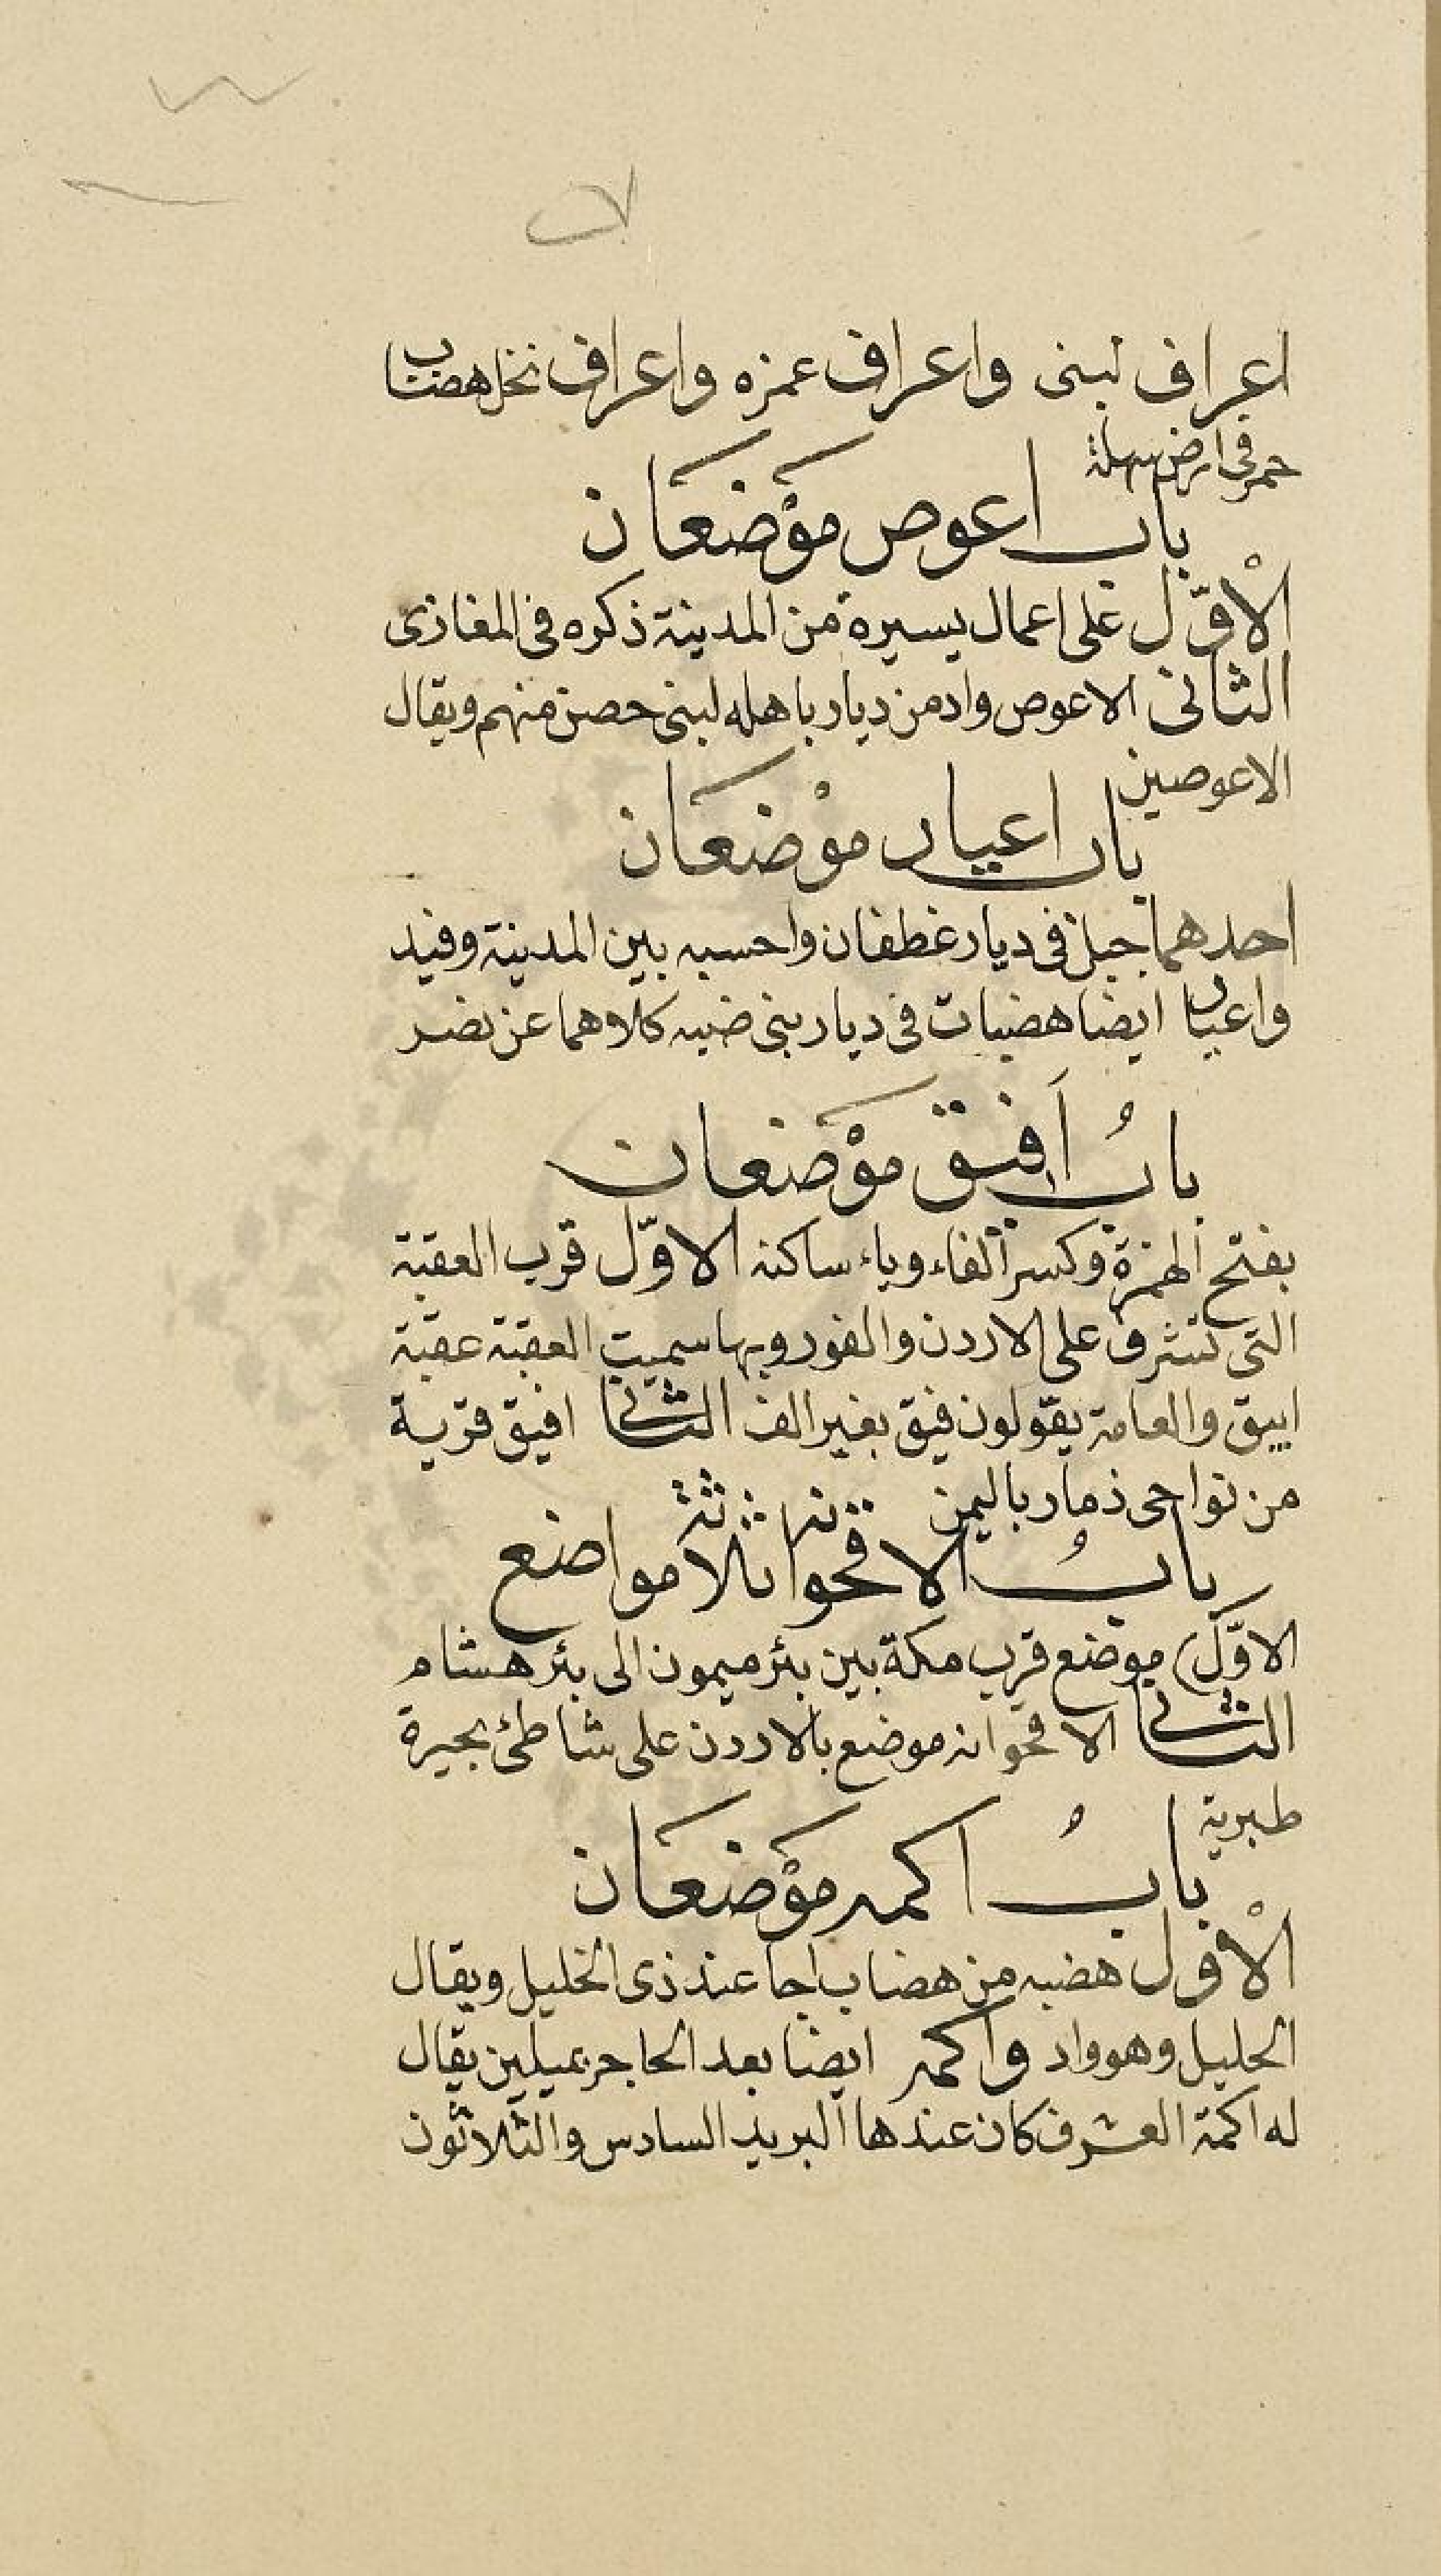 اعراف لبنى واعراف عمزه واعراف نخل هضاب
حمر فى ارض سهلة
باب اعوص موضعان
الاوّل على اعمال يسيرة من المدينة ذكره فى المغازى
الثانى الاعوص واد من ديار باهله لبنى حصن منهم ويقال
الاعوصين
باب اعيار موضعان
احدهما جبل فى ديار غطفان واحسبه بين المدينة وفيد
واعيار ايضا هضبات فى ديار بنى ضبه كلاهما عن نصر
بابُ اَفِيق موْضعان
بفتح الهمزة وكسر الفاء وياء ساكنه الاوّل قرب العقبة
التى تشرف على الاردن والغور وبها سميت العقبة عقبة
ابيق والعامة يقولون فيق بغير الف الثانى افيق قرية
من نواحى ذمار باليمن
بابُ الاقحوانه ثلاثة مواضع
الاوّل موضع قرب مكة بين بئر ميمون الى بئر هشام
الثانى الاقحوانه موضع بالاردن على شاطئ بحيرة
طبرية
بابُ اكمه موْضعان
الاول هضبه من هضاب اجا عند ذى الخليل ويقال
الحليل وهو واد واكمه ايضا بعد الحاجر بميلين يقال
له اكمة العشرف كان عندها البريد السادس والثلاثون